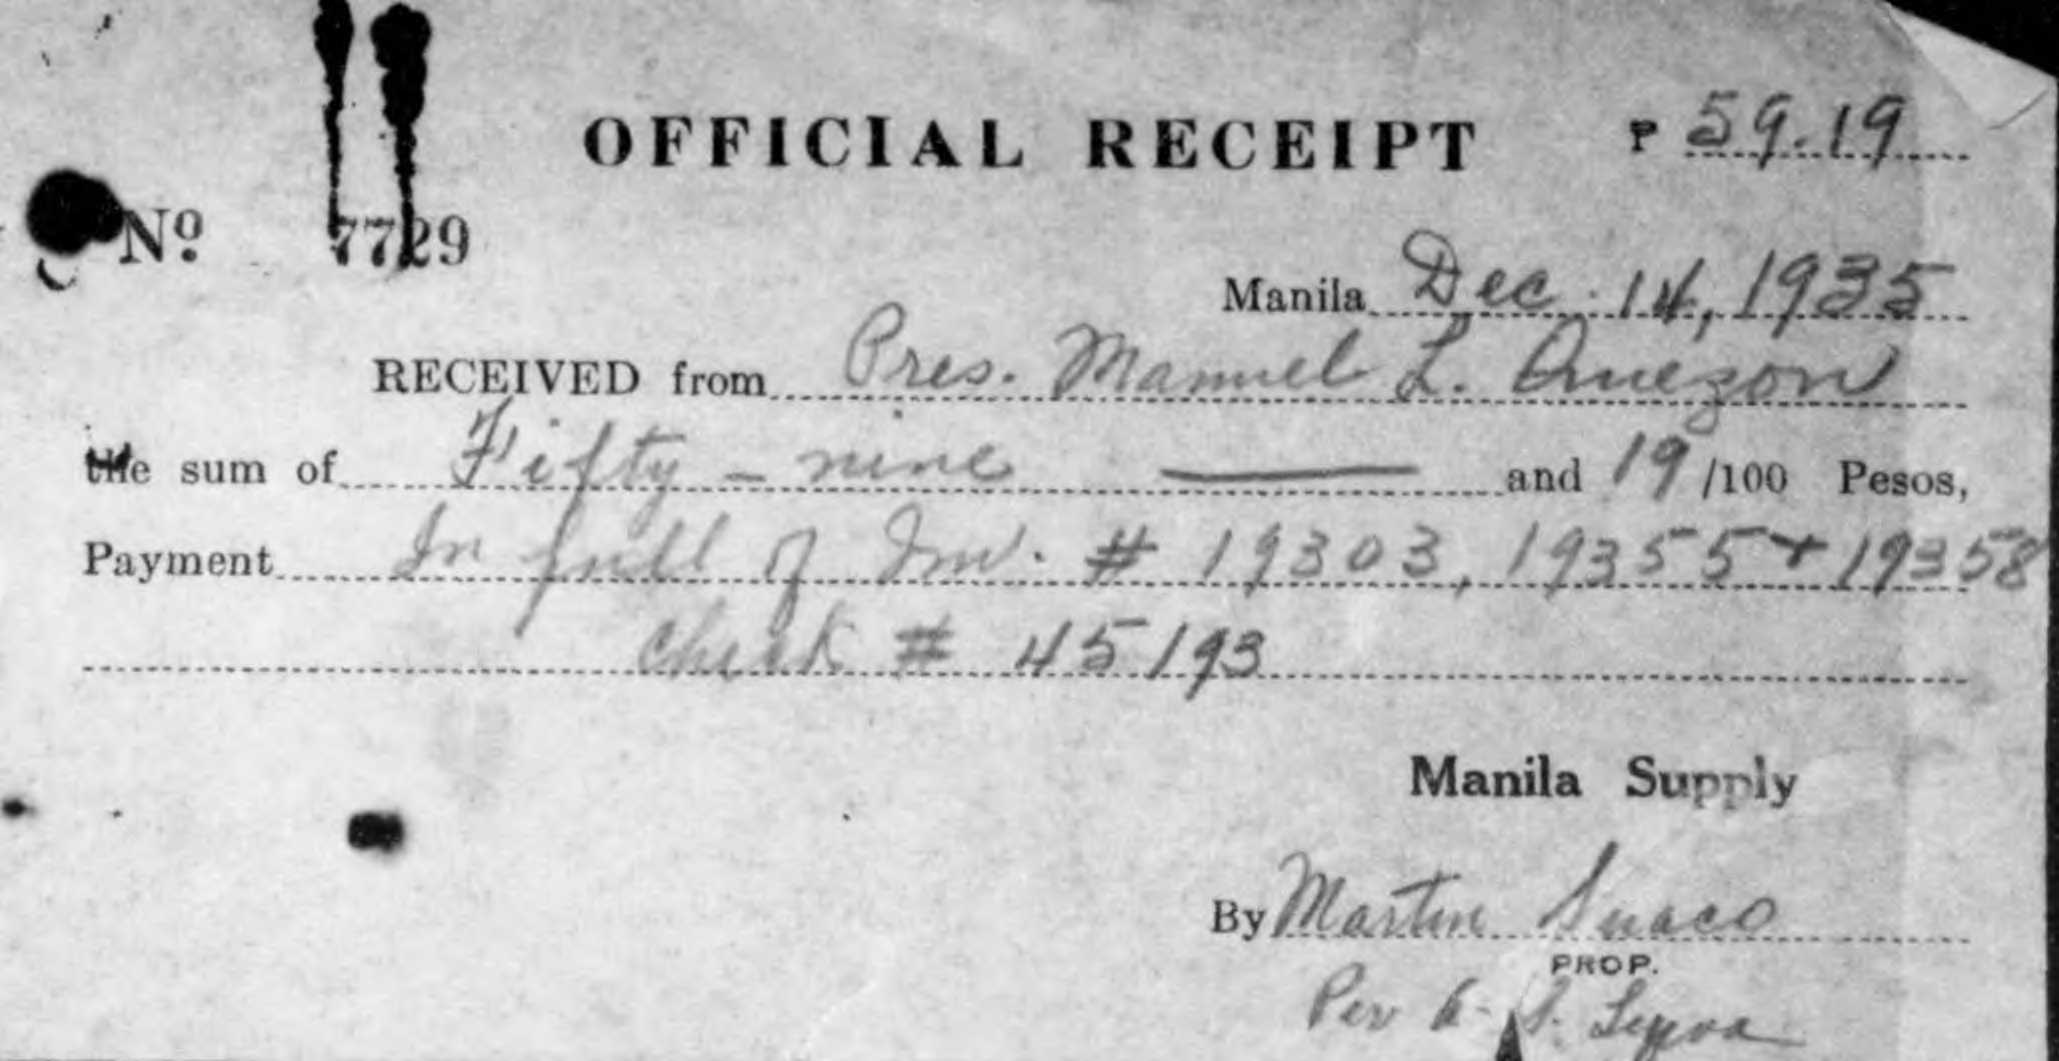 OFFICIAL RECEIPT ₱ 59.19
Nº 7729
Manila Dec. 14, 1935
RECEIVED from Pres. Manuel L. Quezon
the sum of Fifty-nine —— and 19/100 Pesos,
Payment In full of Inv. # 19303, 19355 + 19358
Check # 45193
Manila Supply
By Martin
PROP.
Per